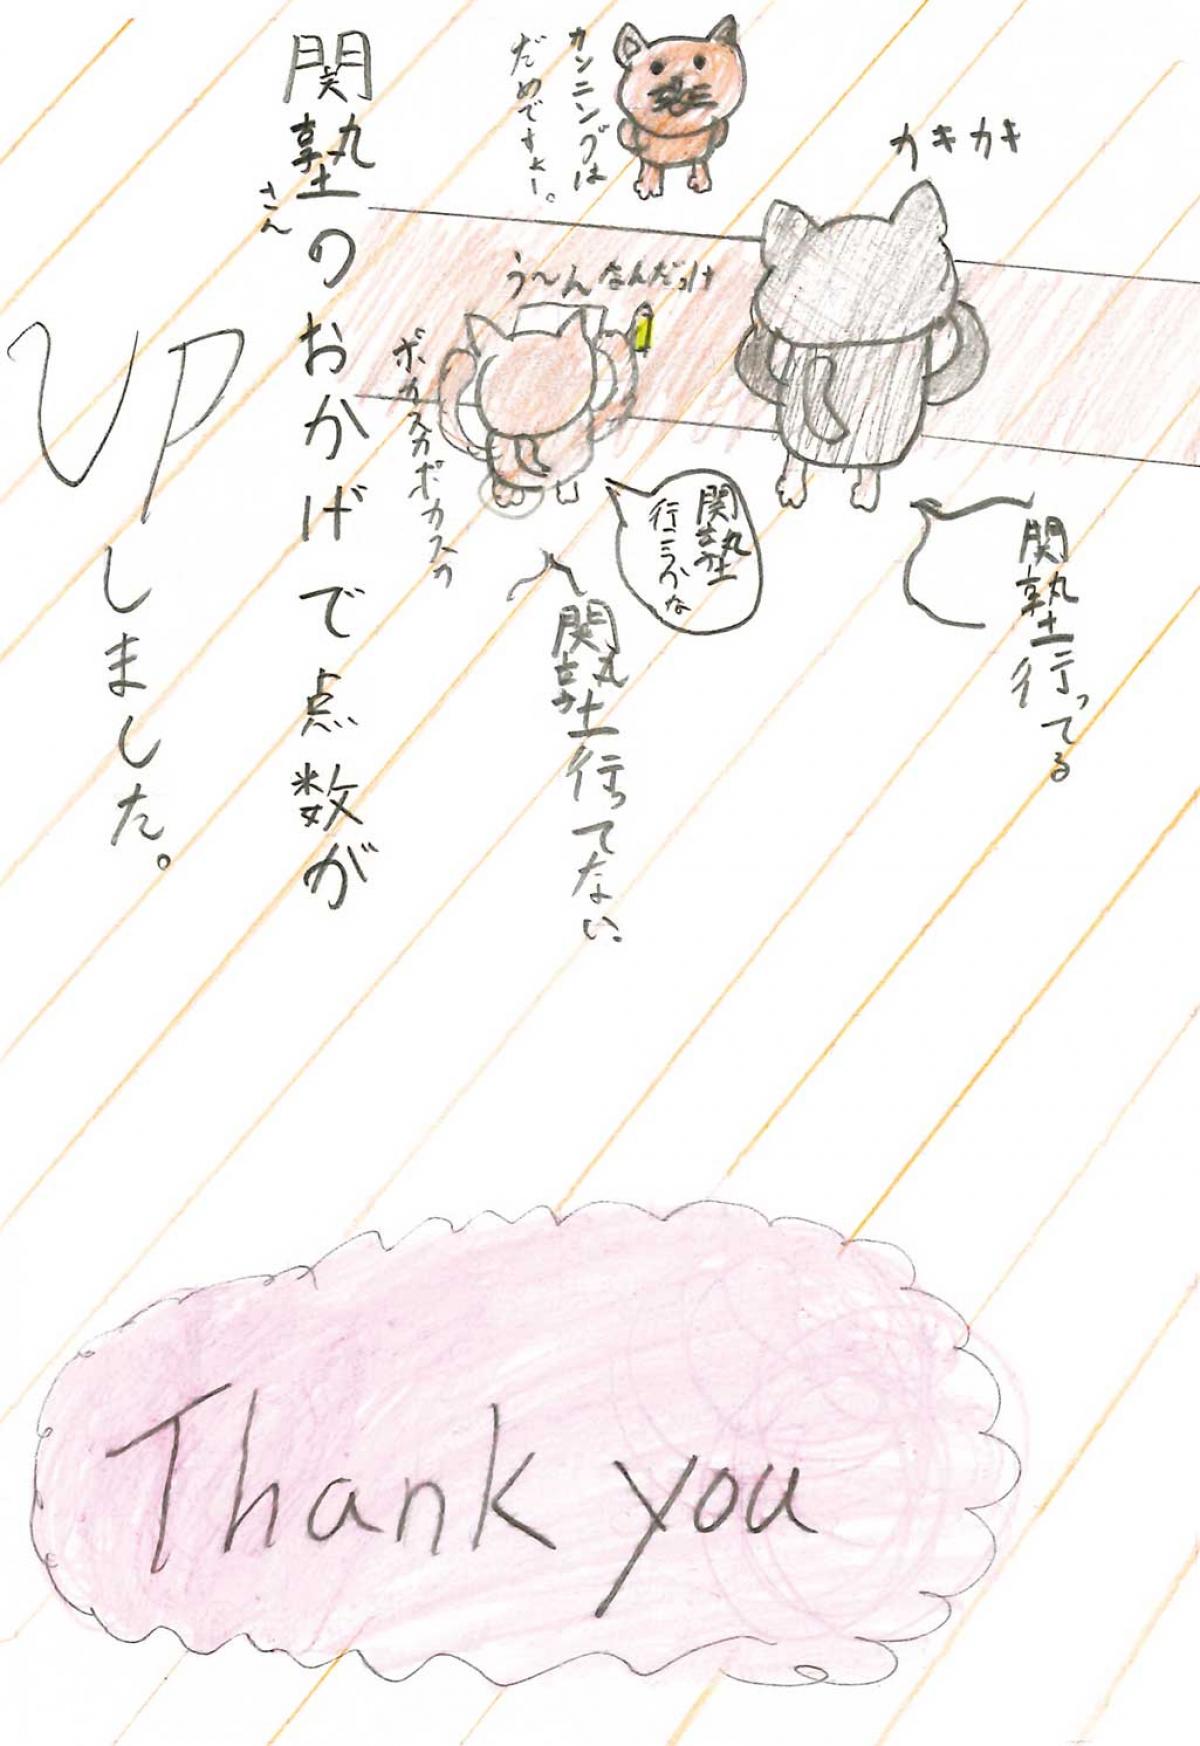 カキカキ
関塾行ってる
カンニングは
だめですよー。
う〜んなんだっけ
関塾
行こうかな
関塾行ってない
ポカスカポカスカ
関塾のおかげで点数が
さん
UPしました。
Thank you